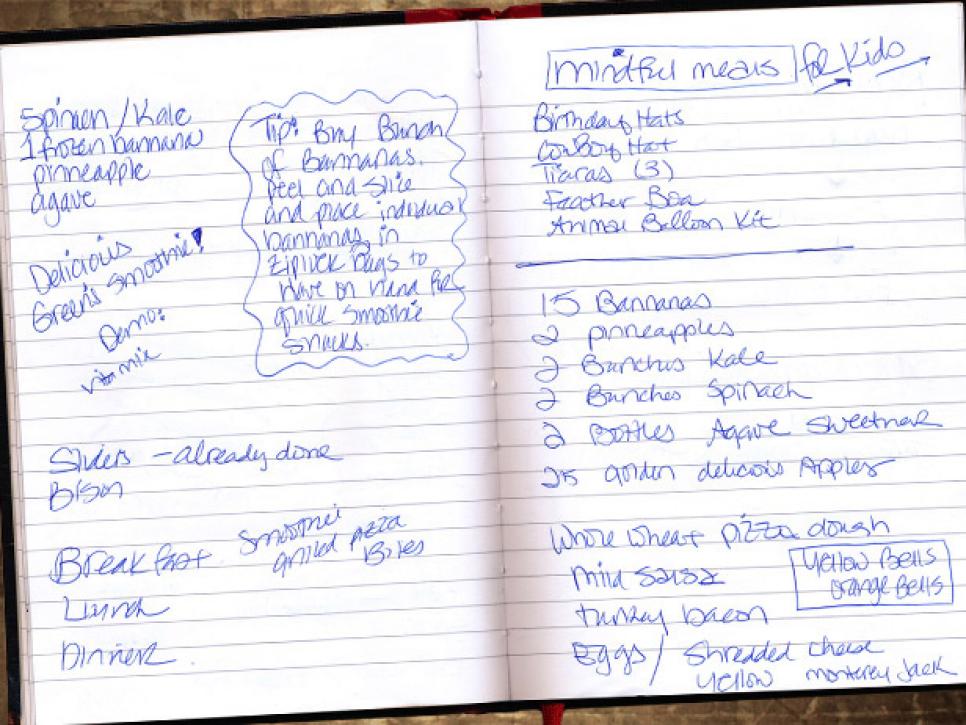 Spinach / Kale
1 frozen bannana
pinneapple
agave
Tip: Buy Bunch
of Bannanas.
peel and slice
and place individual
bannanas in
ziplock bags to
have on hand for
quick smoothie
snacks.
Delicious
Greens Smoothie!
Demo:
vitamix
Sliders - already done
Bison
Breakfast Smoothie
grilled pizza
Bites
Lunch
Dinner
mindful meals for Kids
Birthday Hats
CowBoy Hat
Tiaras (3)
Feather Boa
Animal Balloon Kit
15 Bannanas
2 pinneapples
2 Bunches Kale
2 Bunches Spinach
2 Bottles Agave Sweetner
25 golden delicious Apples
Whole wheat pizza dough
mild salsa
turkey bacon
Yellow Bells
orange Bells
Eggs / Shredded cheese
Yellow monterey Jack